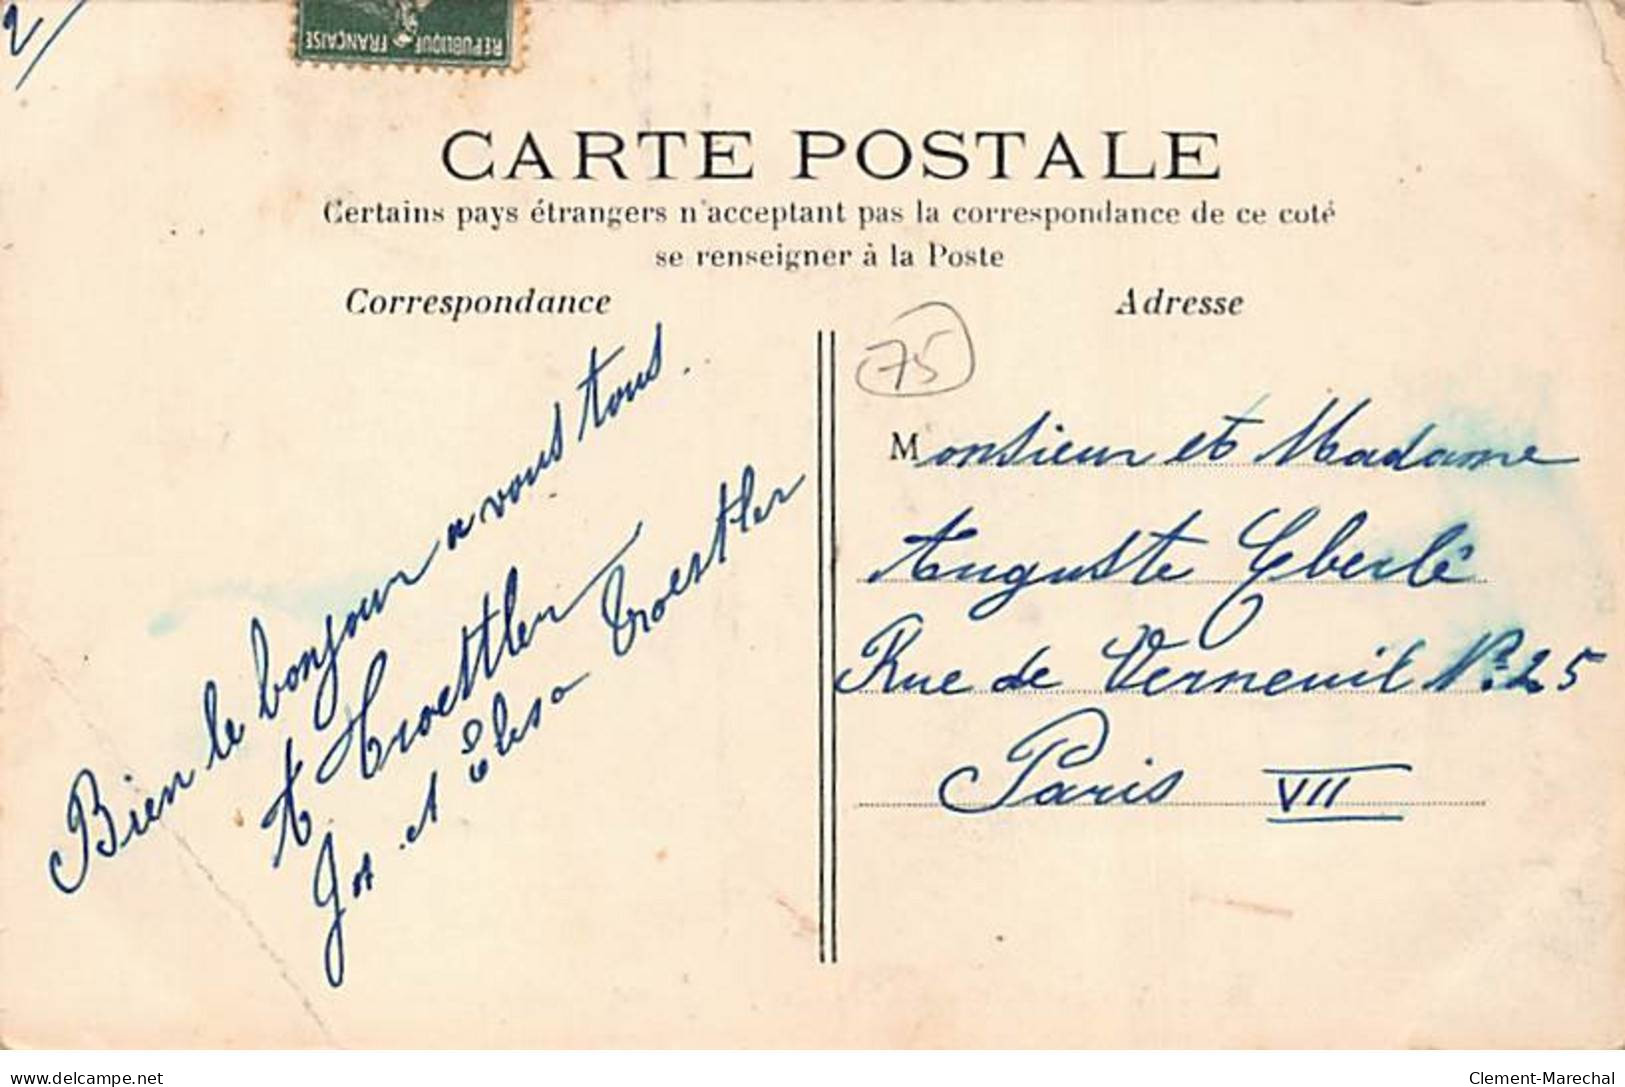 2
RÉPUBLIQUE FRANÇAISE
CARTE POSTALE
Certains pays étrangers n'acceptant pas la correspondance de ce coté
se renseigner à la Poste
Correspondance
Bien le bonjour a vous tous.
A Troestler
Jos et Elisa Troestler
Adresse
75
Monsieur et Madame
Auguste Eberlé
Rue de Verneuil No. 25
Paris VII
delcampe.net
Clement-Marechal